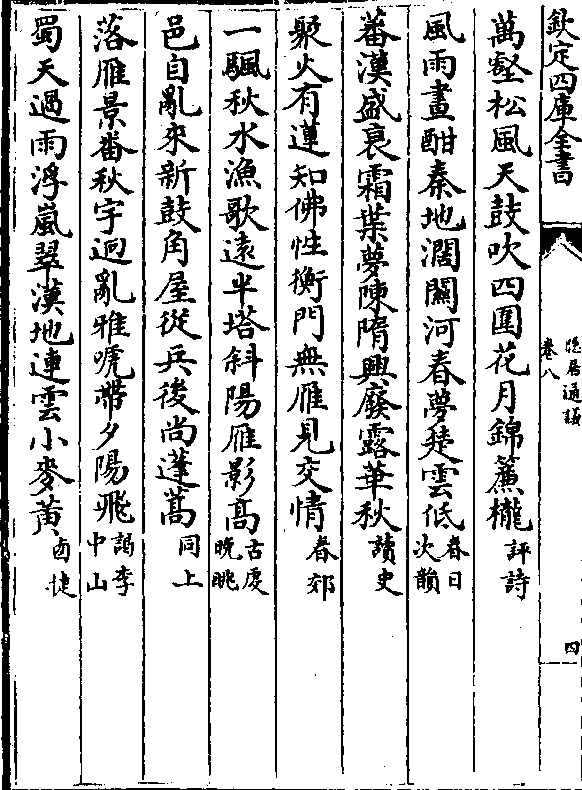 欽定四庫全書
隱居通議
卷八
四
萬壑松風天鼓吹四圍花月錦簾櫳評詩
風雨晝酣秦地濶關河春夢楚雲低春日次韻
蕃漢盛衰霜葉夢陳隋興廢露華秋讀史
聚火有蓮知佛性衡門無雁見交情春郊
一颿秋水漁歌遠半塔斜陽雁影髙古虔晚眺
邑自亂來新鼓角屋從兵後尚蓬蒿同上
落雁景番秋宇迥亂雅唬帶夕陽飛謁李中山
蜀天過雨浮嵐翠漢地連雲小麥黄捷